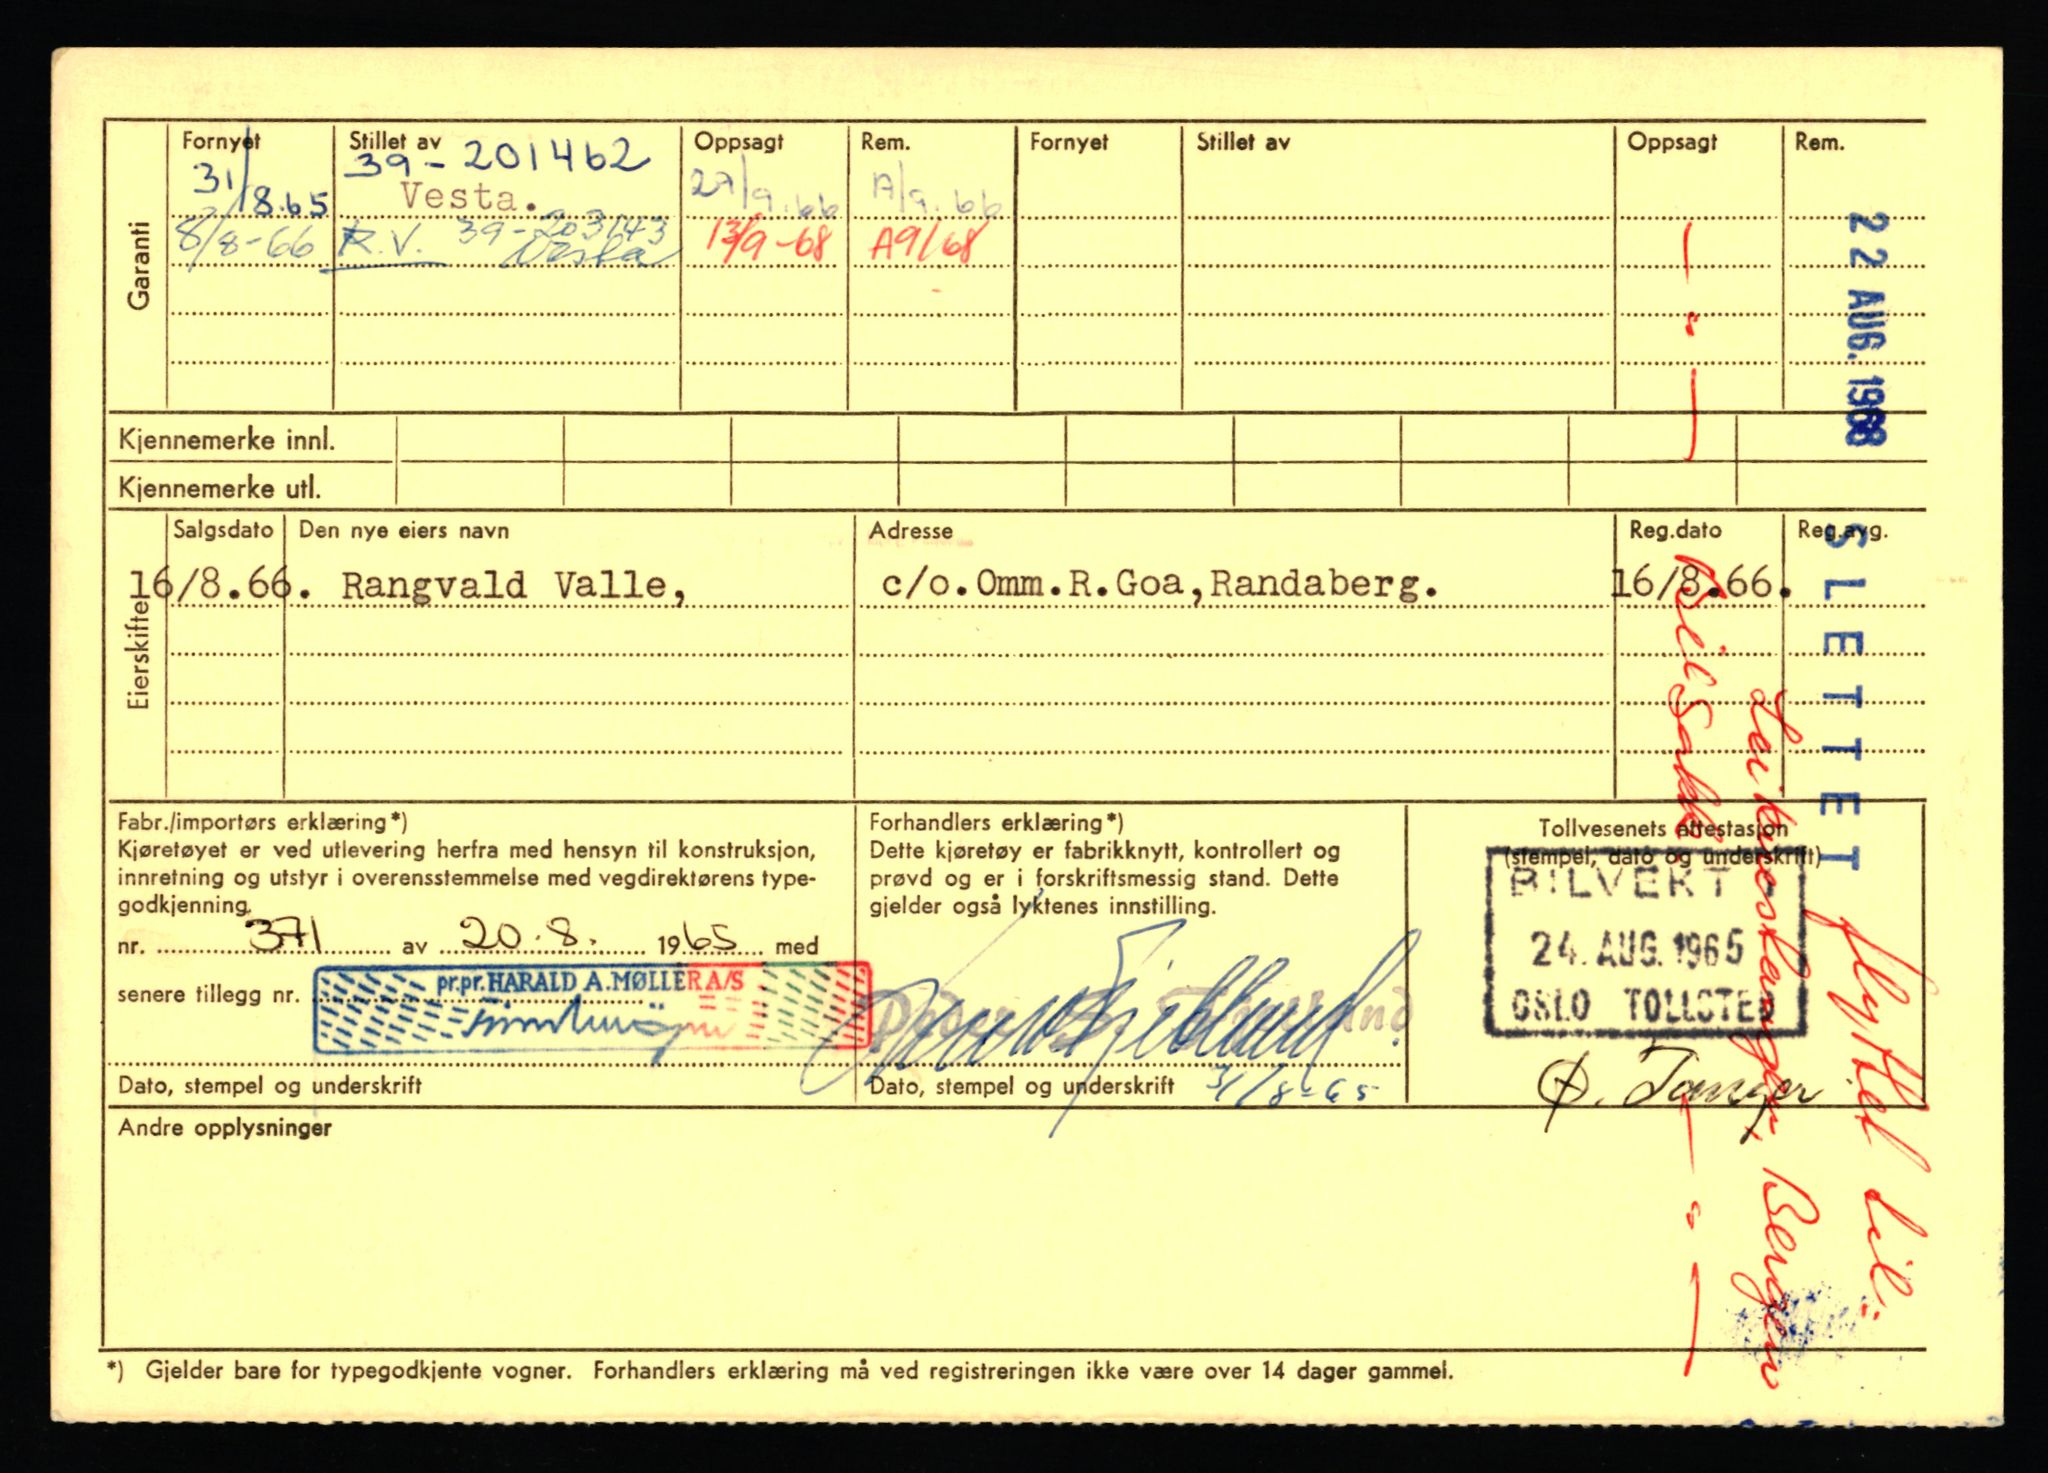 Garanti
Fornyet Stillet av Oppsagt Rem. Fornyet Stillet av Oppsagt Rem.
31/8.65 39-201462 Vesta. 27/9.66 A/9.66
8/8-66 R.V. 39-203143 Vesta 13/9-68 A9/68
Kjennemerke innl.
Kjennemerke utl.
Eierskifte
Salgsdato Den nye eiers navn Adresse Reg.dato Reg.avg.
16/8.66. Rangvald Valle, c/o.Omm.R.Goa,Randaberg. 16/8.66.
Fabr./importørs erklæring*)
Kjøretøyet er ved utlevering herfra med hensyn til konstruksjon,
innretning og utstyr i overensstemmelse med vegdirektørens type-
godkjenning.
nr. 371 av 20.8. 1965 med
senere tillegg nr.
pr.pr. HARALD A. MØLLER A/S
Dato, stempel og underskrift
Forhandlers erklæring*)
Dette kjøretøy er fabrikknytt, kontrollert og
prøvd og er i forskriftsmessig stand. Dette
gjelder også lyktenes innstilling.
Dato, stempel og underskrift 31/8-65
Tollvesenets attestasjon
(stempel, dato og underskrift)
BILVERT
24. AUG. 1965
OSLO TOLLSTED
Andre opplysninger
*) Gjelder bare for typegodkjente vogner. Forhandlers erklæring må ved registreringen ikke være over 14 dager gammel.
22 AUG. 1968
SLETTET flyttet til:
Bergen